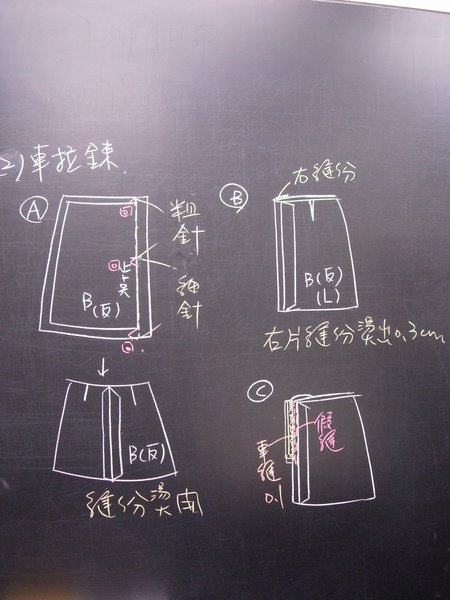 2)車拉鍊.
A
回
粗針
回
止点
細針
B(反)
回
B(反)
縫份燙開
B
右縫份
B(反)
(L)
右片縫份燙出0.3cm
C
假縫
車縫0.1